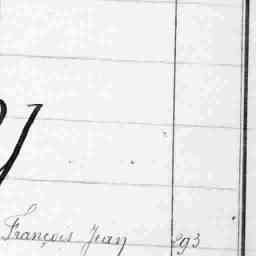 y
François Jean 293